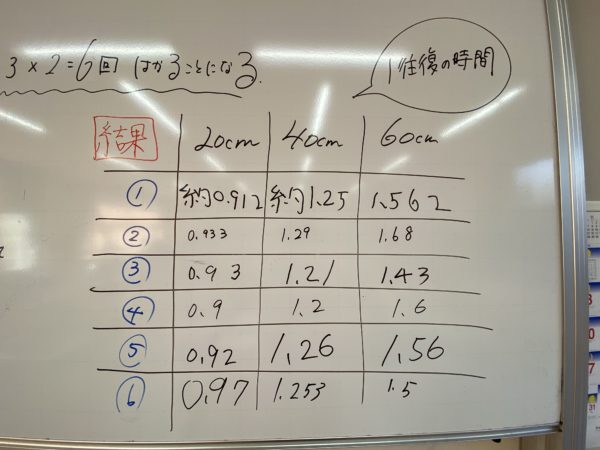 3×2=6回 はかることになる.
1往復の時間
結果 20cm 40cm 60cm
① 約0.912 約1.25 1.562
② 0.933 1.29 1.68
③ 0.93 1.21 1.43
④ 0.9 1.2 1.6
⑤ 0.92 1.26 1.56
⑥ 0.97 1.253 1.5